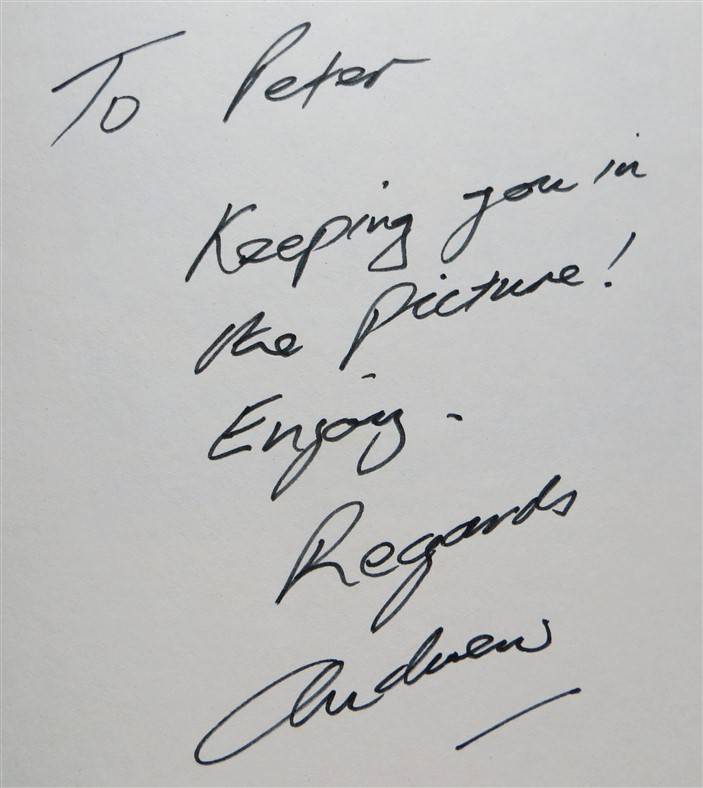 To Peter
Keeping you in
the picture!
Enjoy.
Regards
Andrew